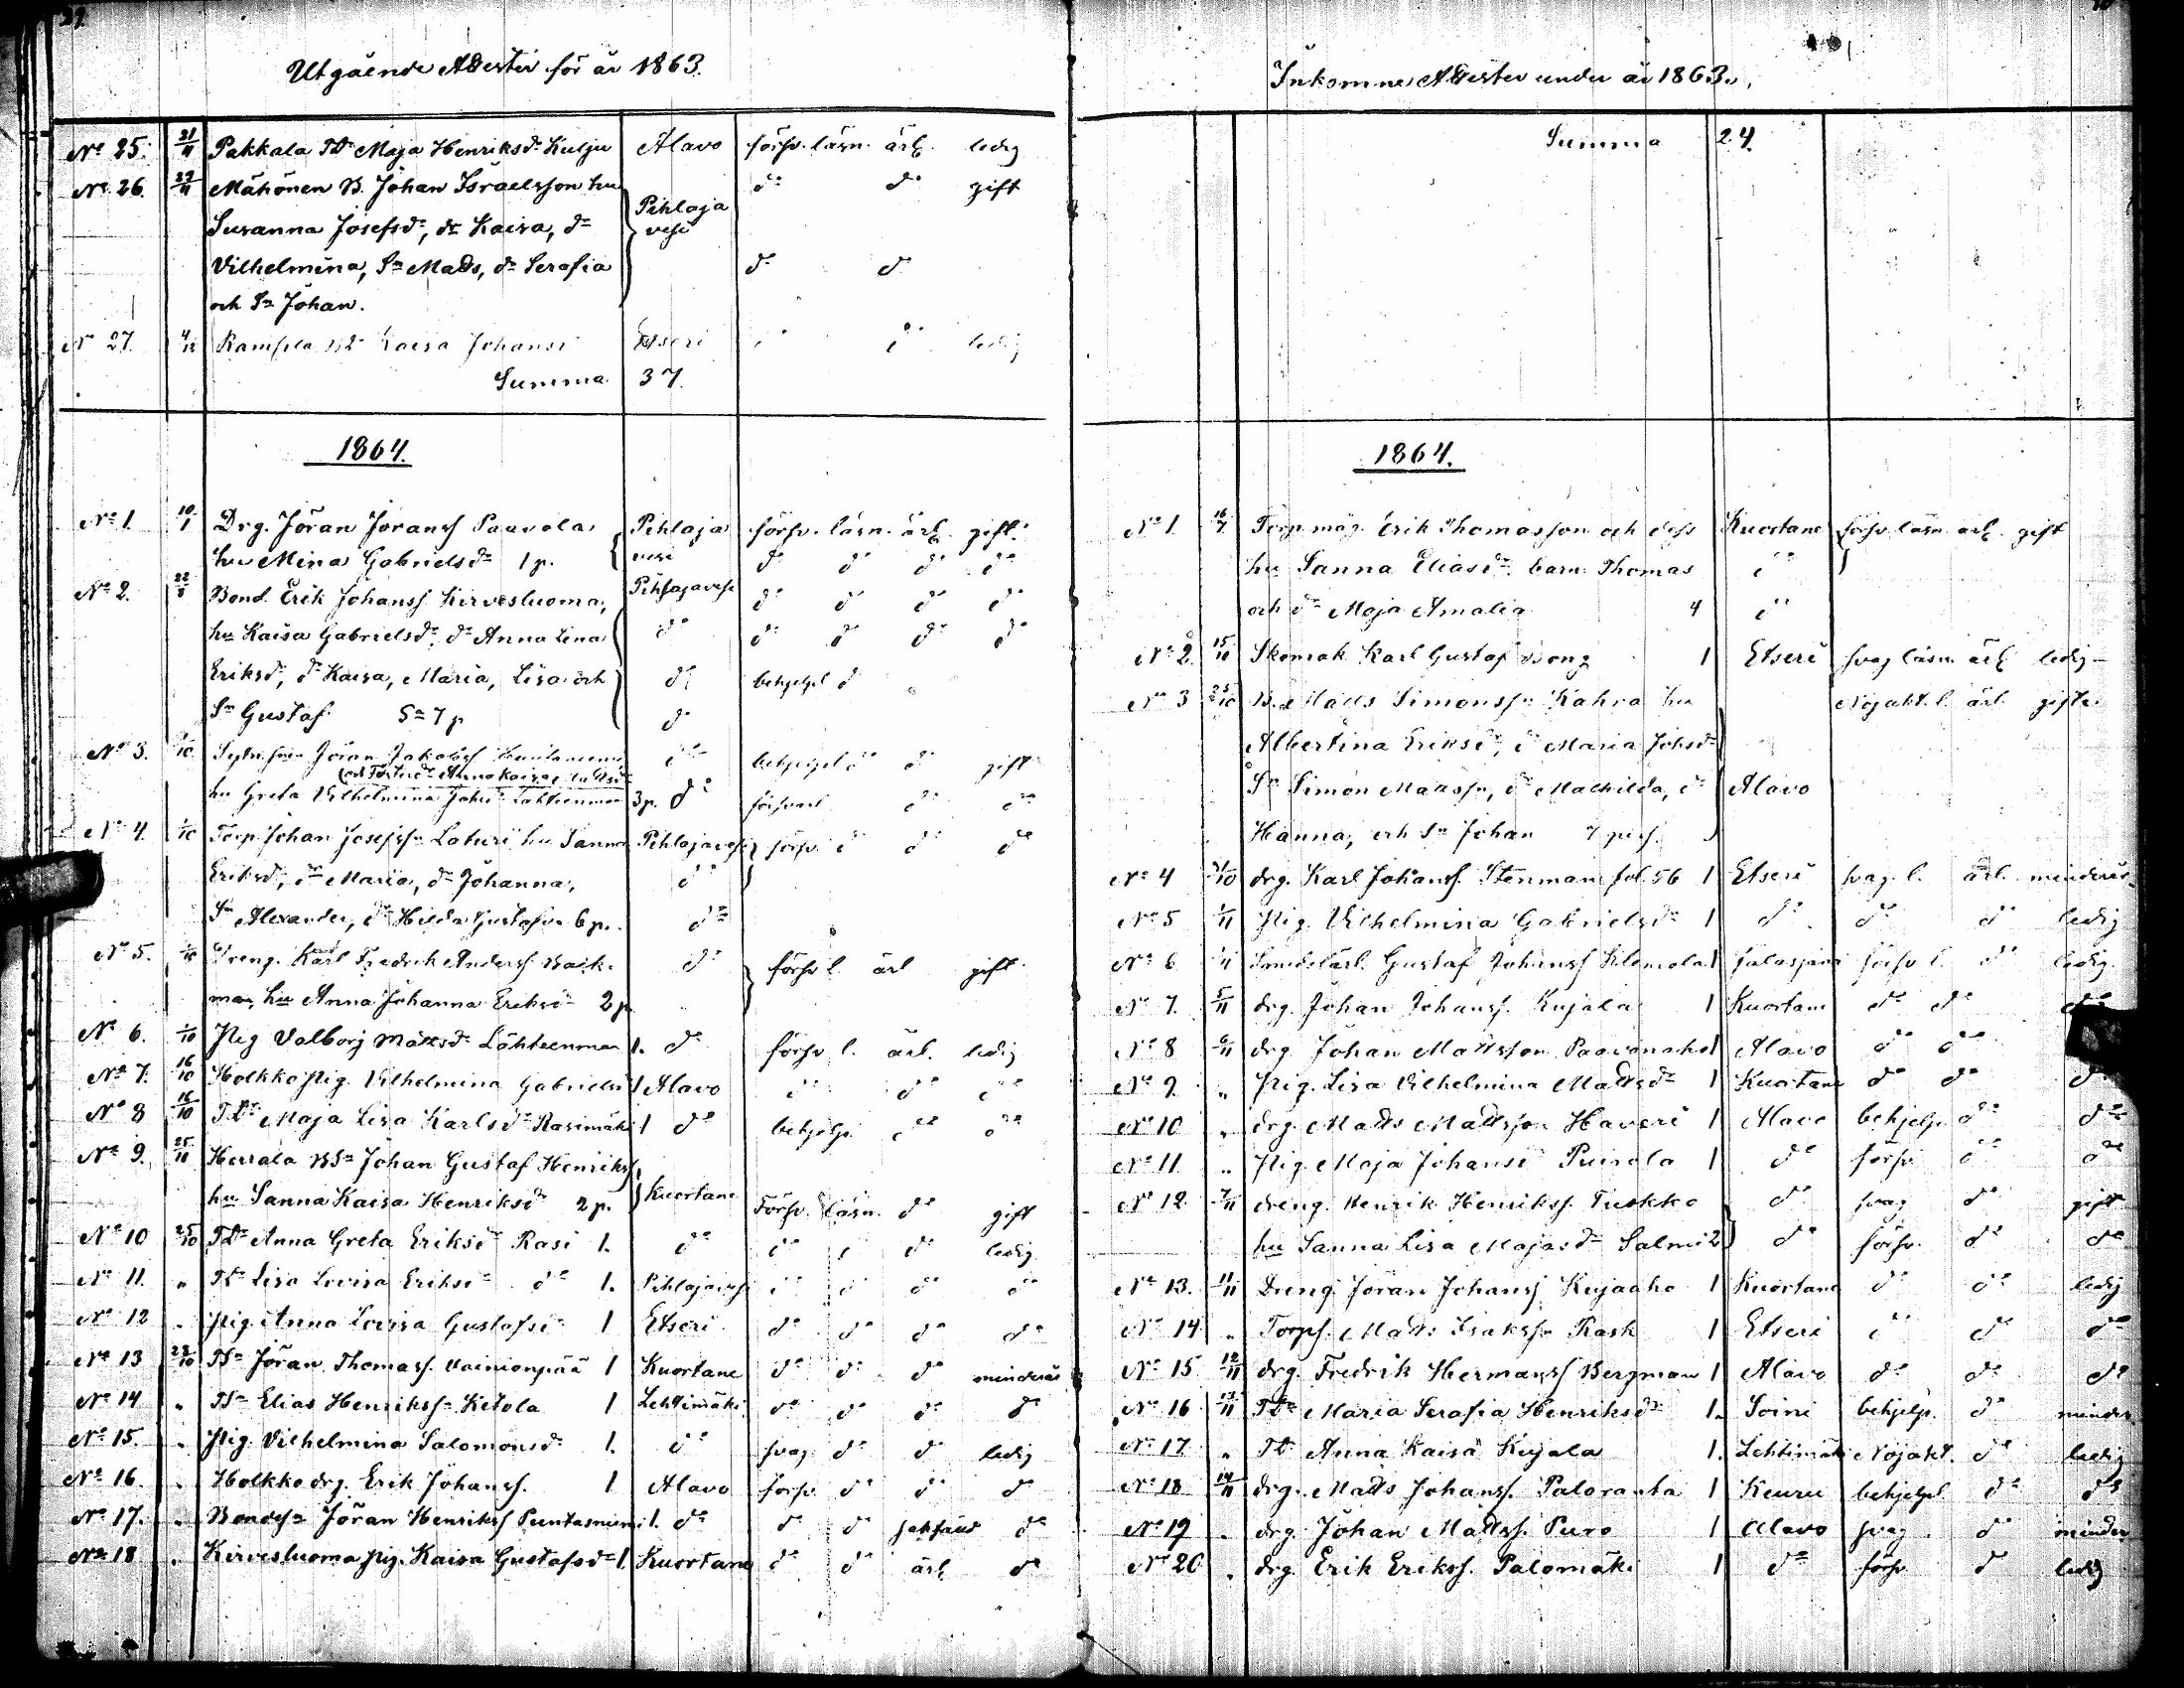 29.
Utgående Attester för år 1863.
No 25. 21/11 Pakkala Tdr Maja Henriksdr Kulju Alavo försv. läsn. ärl. ledig
No 26. 29/11 Mähönen B. Johan Israelsson hu do do gift
Susanna Josefsdr, dr Kaisa, dr Pihlaja
vesi
Vilhelmina, Sn Matts, dr Serafia do do
och Sn Johan.
No 27. 4/12 Kaisa Johansdr Etseri do do ledig
Summa 37.
1864.
No 1. 10/1 Drg. Jöran Joranss Paavola Pihlaja försv. läsn. ärl. gift.
hu Mina Gabrielsdr 1 p. vesi do do do do
No 2. Bond. Erik Johanss Kirvesluoma, Pihlajavesi do do do do
hu Kaisa Gabrielsdr, dr Anna Lina do do do do do
Eriksdr, dr Kaisa, Maria, Lisa och do behjelpl do
Sn Gustaf Sa 7 p do
No 3. Jöran Jakobss do behjelpl do do gift
och Anna Kaisa
hu Greta Vilhelmina Johsdr Lahteenmaa 3 p. do försvarl do do
No 4. 1/10 Torp. Johan Josefss. Laturi hu Sanna Pihlajavesi försv. do do do
Eriksdr, dr Maria, dr Johanna, do
Sn Alexander, dr Hilda Gustafva 6 p. do
No 5. 1/10 Dreng. Karl Fredrik Anderss Back- do försv l. ärl gift
man, hu Anna Johanna Eriksdr 2 p
No 6. 1/10 Pig Valborg Mattsdr Lähteenmaa 1. do försv l. ärl. ledig
No 7. 16/10 Holkko pig. Vilhelmina Gabrielsdr 1 Alavo do do do
No 8 16/10 Tdr Maja Lisa Karlsdr Rasimäki 1 do behjelp. do do
No 9. 25/10 Herrala BSn Johan Gustaf Henrikss,
hu Sanna Kaisa Henriksdr 2 p. Kuortane Försv. läsn. do gift
No 10 25/10 Tdr Anna Greta Eriksdr Rasi 1. do do do do ledig
No 11. " Tdr Lisa Lovisa Eriksdr do 1. Pihlajavesi do do do do
No 12 " Pig. Anna Lovisa Gustafsdr 1 Etseri do do do do
No 13 28/10 TSn Jöran Thomass. Vainionpää 1 Kuortane do do do minderår
No 14 " TSn Elias Henrikss. Ketola 1 Lehtimäki do do do do
No 15. " Pig. Vilhelmina Salomonsdr 1. do svag do do ledig
No 16 " Holkko drg. Erik Johanss. 1 Alavo försv do do do
No 17. " Bondsn Jöran Henrikss Puntasniemi 1. do do do do
No 18 " Kirvesluoma pig. Kaisa Gustafsdr 1. Kuortane do do ärl do
Inkomne Attester under år 1863.
Summa 24.
1864.
No 1 Torp. måg. Erik Thomasson och dess Kuortane försv läsn ärl. gift
hu Sanna Eliasdr. barn Thomas do
och dr Maja Amalia 4 do
No 2. 15/10 Skomak. Karl Gustaf 1 Etseri svag läsn. ärl ledig
No 3 25/10 B. Matts Simonss. Kahra hu Nöjakt. l. ärl. gifte
Albertina Eriksdr, dr Maria Johsdr
Sn Simon Mattss., dr Mathilda, dr Alavo
Hanna, och Sn Johan 7 pers.
No 4 31/10 drg. Karl Johanss. Stenman fol. 56 1 Etseri svag. l. ärl. minderår.
No 5 1/11 Pig. Vilhelmina Gabrielsdr 1 do do do ledig
No 6 Gustaf Johanss 1 Jalasjärvi försv l. do ledig
No 7. 5/11 drg. Johan Johanss. Kujala 1 Kuortane do do do
No 8 6/11 drg Johan Mattsson Paavonaho 1 Alavo do do
No 9. " Pig. Lisa Vilhelmina Mattsdr 1 Kuortane do do do
No 10 " drg. Matts Mattsson Haveri 1 Alavo behjelp. do do
No 11. " Pig. Maja Johansdr 1 do försv do do
No 12. 7/11 dreng. Henrik Henrikss. Tuokko do svag do gift
hu Sanna Lisa Majasdr Salmi 2 do försv. do do
No 13. 11/11 Dreng. Jöran Johanss Kujaaho 1 Kuortane do do ledig
No 14 " Torps. Matts Isakss. Rask 1 Etseri do do do
No 15 12/11 drg. Fredrik Hermanss Bergman 1 Alavo do do do
No 16 13/11 Tdr Maria Serafia Henriksdr 1. Soini behjelp. do minder
No 17. " Tdr Anna Kaisa Kujala 1. Lehtimäki Nöjakt. do ledig
No 18 14/11 drg. Matts Johanss. Paloranta 1 Keuru behjelpl do do
No 19 " drg. Johan Mattss. Puro 1 Alavo svag do minder
No 20 " drg. Erik Erikss. Palomäki 1 do försv do ledig